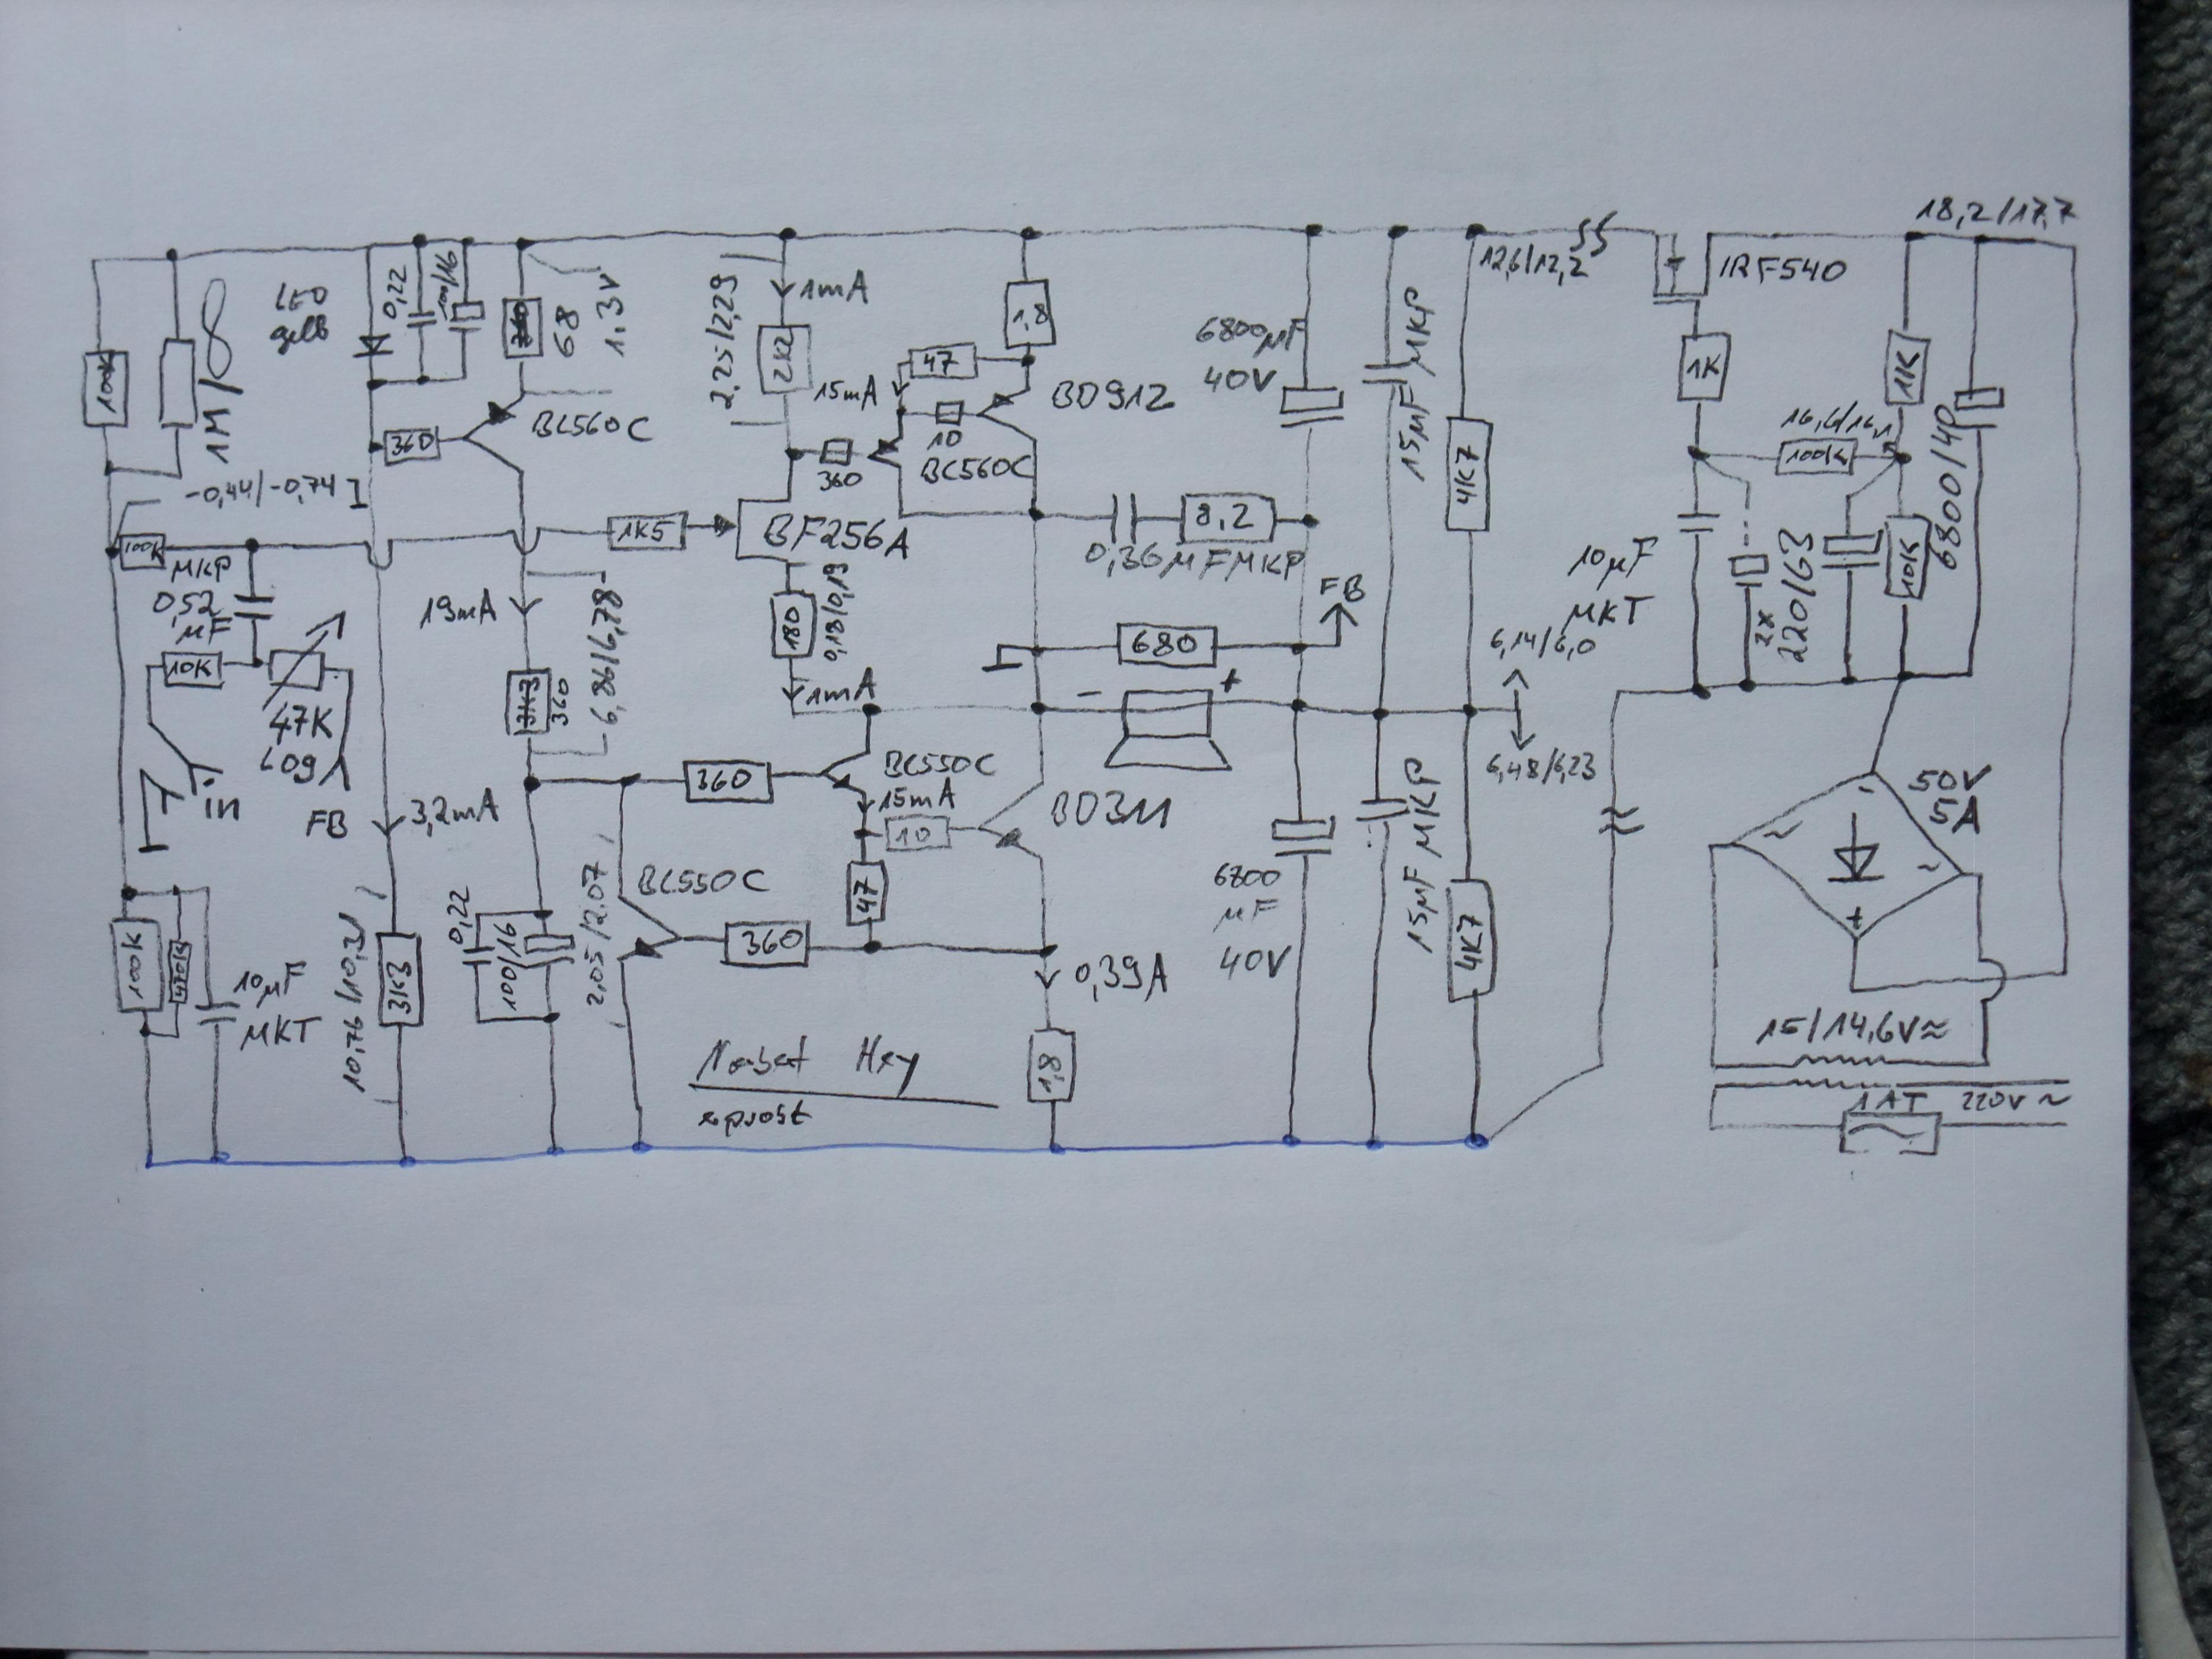 18,2/17,7
12,6/12,2
IRF540
LED
gelb
0,22
100/16
68
1,3V
2,25/2,29
1mA
2K2
1,8
47
15mA
10
BD912
6800µF
40V
15µF MKP
100K
1M/8
360
BC560C
360
BC560C
4K7
1K
1K
16,6/16,1
100K
6800/40
-0,44/-0,74
100K
MKP
0,52
µF
1K5
BF256A
0,36µFMKP
8,2
10µF
MKT
2x
220/63
10K
19mA
6,86/6,78
180
0,18/0,19
FB
680
6,14/6,0
10K
47K
Log
3K3
360
1mA
-
+
6,48/6,23
in
FB
3,2mA
360
BC550C
15mA
10
BD311
50V
5A
~
~
-
+
10,76/10,31
3K3
0,22
100/16
2,05/2,07
BC550C
47
360
6800
µF
40V
15µF MKP
4K7
100K
470K
10µF
MKT
0,39A
1,8
15/14,6V≈
1AT
220V~